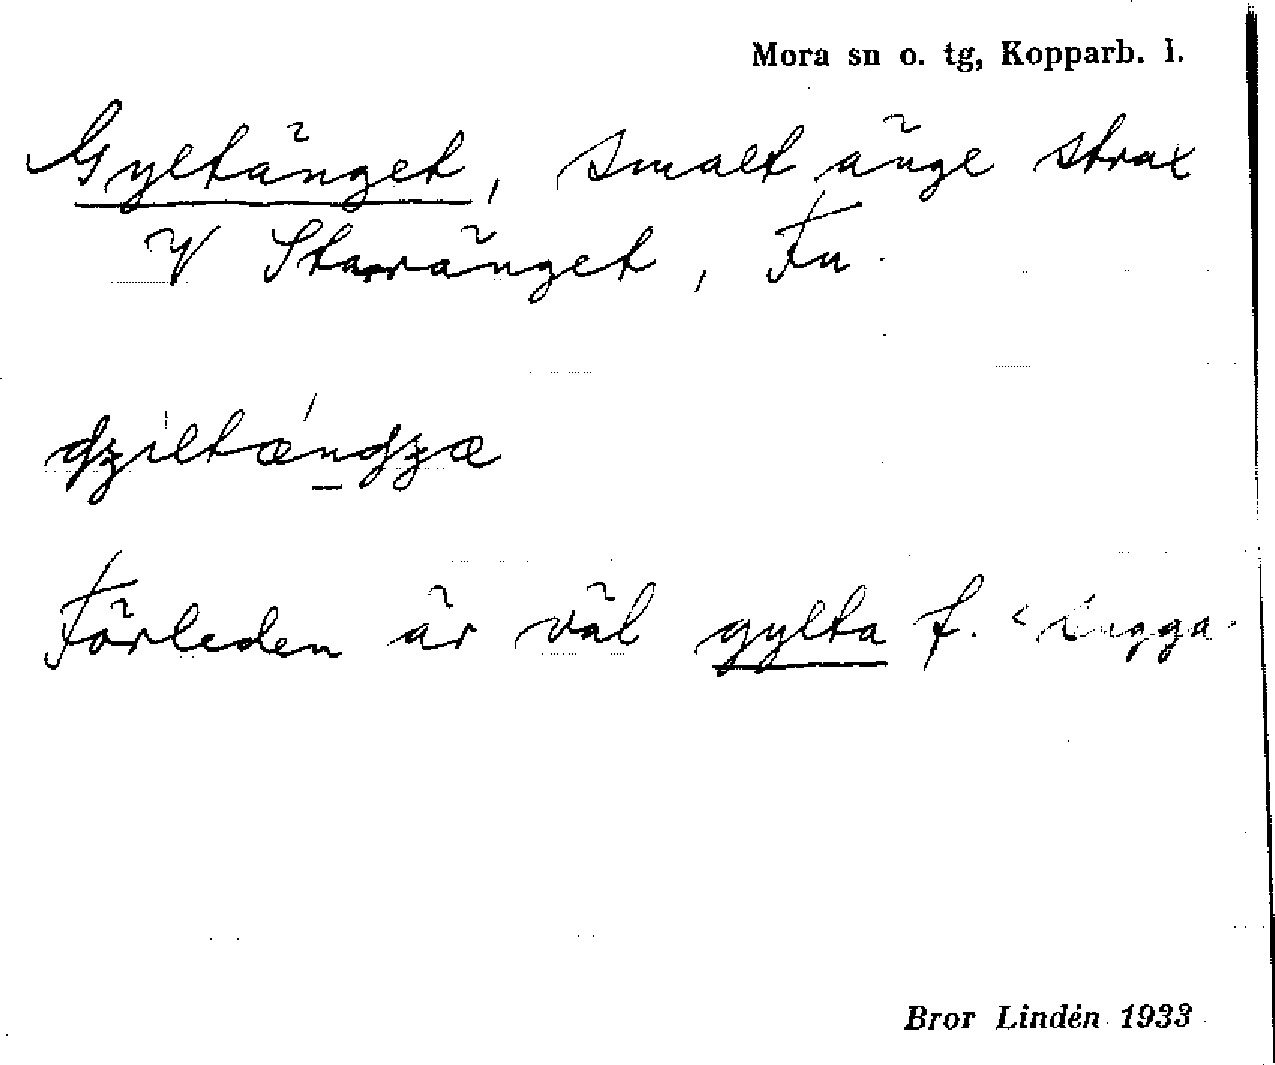 Mora sn o. tg, Kopparb. l.
Gyltänget, smalt änge strax
V Starränget, Fu.
dziltǽndzæ
Förleden är väl gylta f. 'sugga'
Bror Lindén 1933